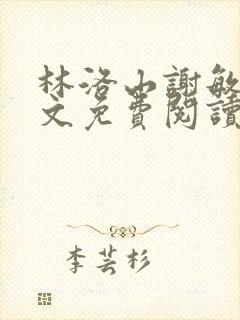 林洛山謝敏
文免費閱讀
李芸杉